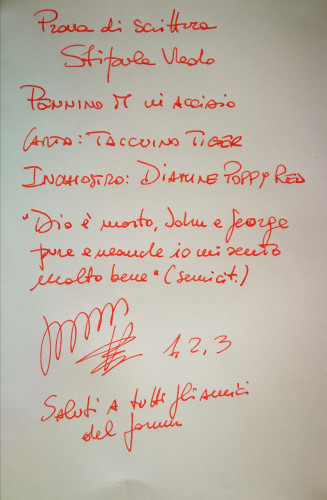 Prova di scrittura
Stipula Vedo
Pennino M in acciaio
Carta: Taccuino Tiger
Inchiostro: Diamine Poppy Red
"Dio è morto, John e George
pure e neanche io mi sento
molto bene" (semicit.)
1, 2, 3
Saluti a tutti gli amici
del forum